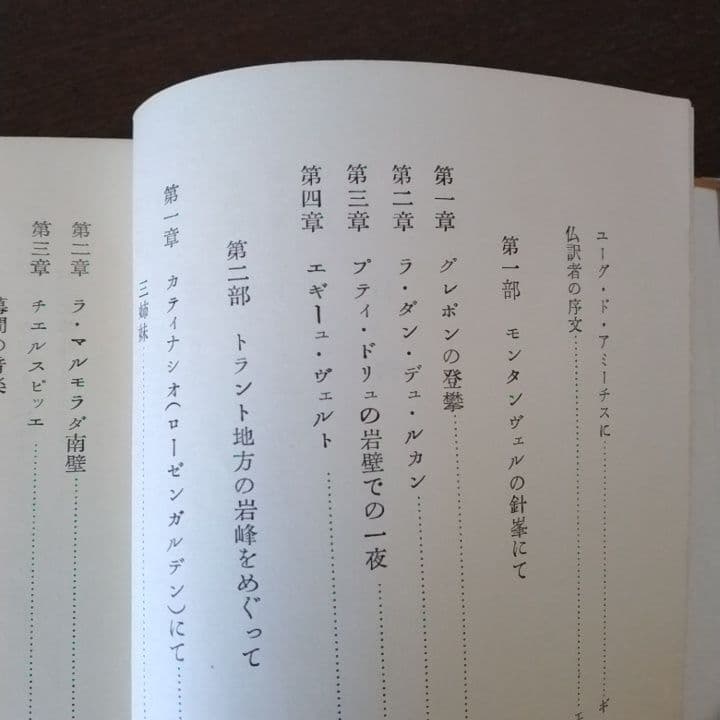 ユーグ・ド・アミーチスに
仏訳者の序文
第一部 モンタンヴェルの針峯にて
第一章 グレポンの登攀
第二章 ラ・ダン・デュ・ルカン
第三章 プティ・ドリュの岩壁での一夜
第四章 エギーユ・ヴェルト
第二部 トラント地方の岩峰をめぐって
第一章 カティナシオ(ローゼンガルデン)にて
三姉妹
第二章 ラ・マルモラダ南壁
第三章 チエルスピッエ